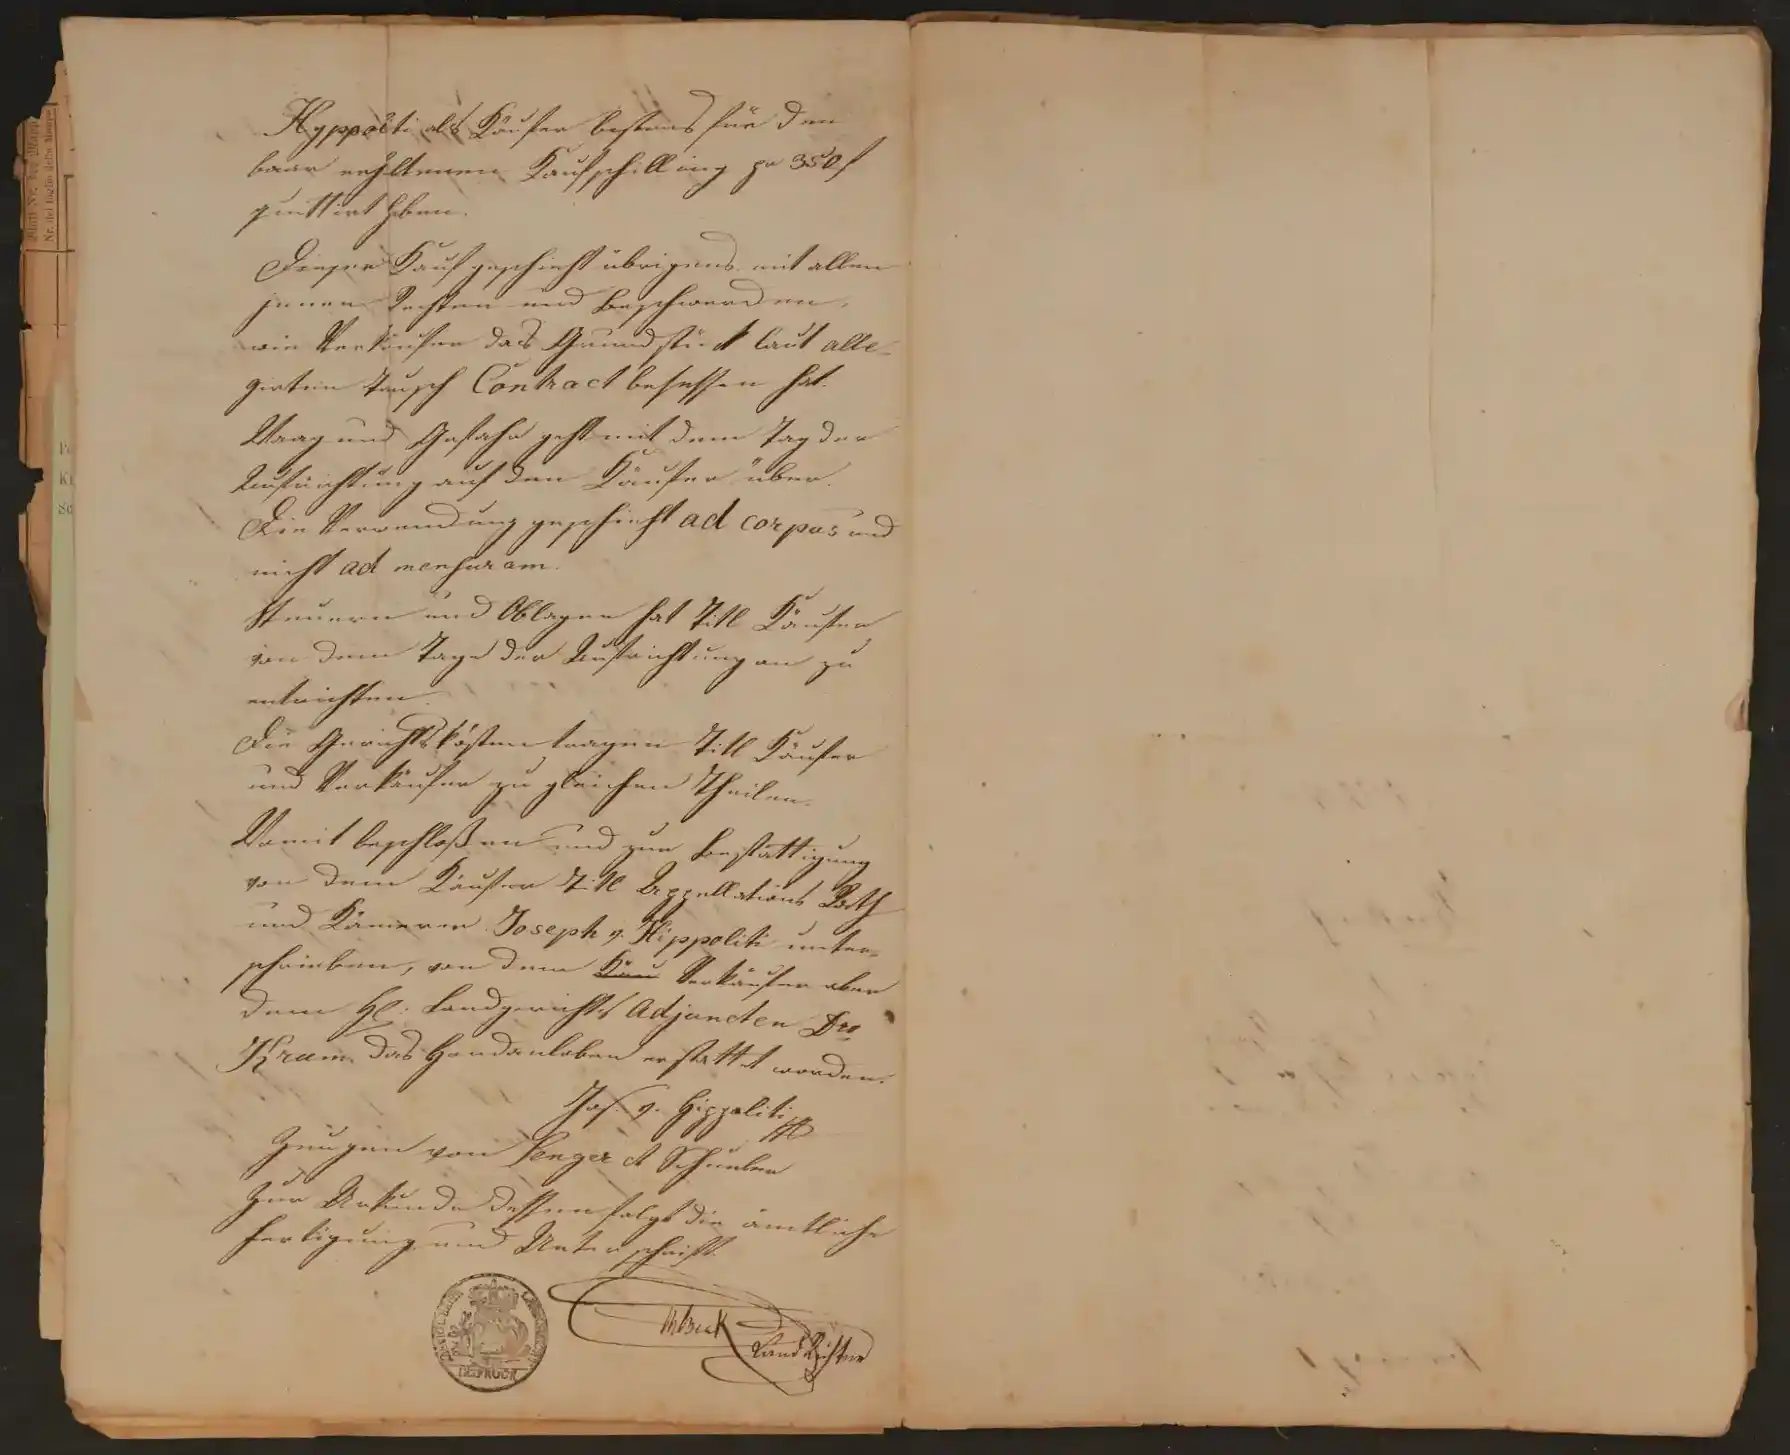 Hyppoliti als Käufer bestens für den
baar erhltenen Kaufschilling pr 350 f
quittirt haben.
Dieser Kauf geschieht übrigens mit allen
jenen Rechten und Beschwerden,
wie Verkäufer das Grundstück laut alle-
girten Tausch Contract besessen hat.
Waag und Gefahr geht mit dem Tag der
Aufrichtung auf den Käufer über.
Die Verwendung geschieht ad corpus und
nicht ad mensuram.
Steuern und Oblagen hat Titl Käufer
von dem Tage der Aufrichtung an zu
entrichten.
Die Gerichtskösten tragen Titl Käufer
und Verkäufer zu gleichen Theilen.
Womit beschloßen und zur Bestättigung
von dem Käufer Titl Appellations Rath
und Kämerer Joseph v. Hippoliti unter-
schrieben, von dem Käu Verkäufer aber
dem H: Landgerichts Adjuncten Dro
das Handanloben erstattet worden.
Jos. v. Hippoliti
Zeugen von Senger et Schueler
Zur Urkunde dessen folgt die ämtliche
Fertigung und Unterschrift.
LandRichter